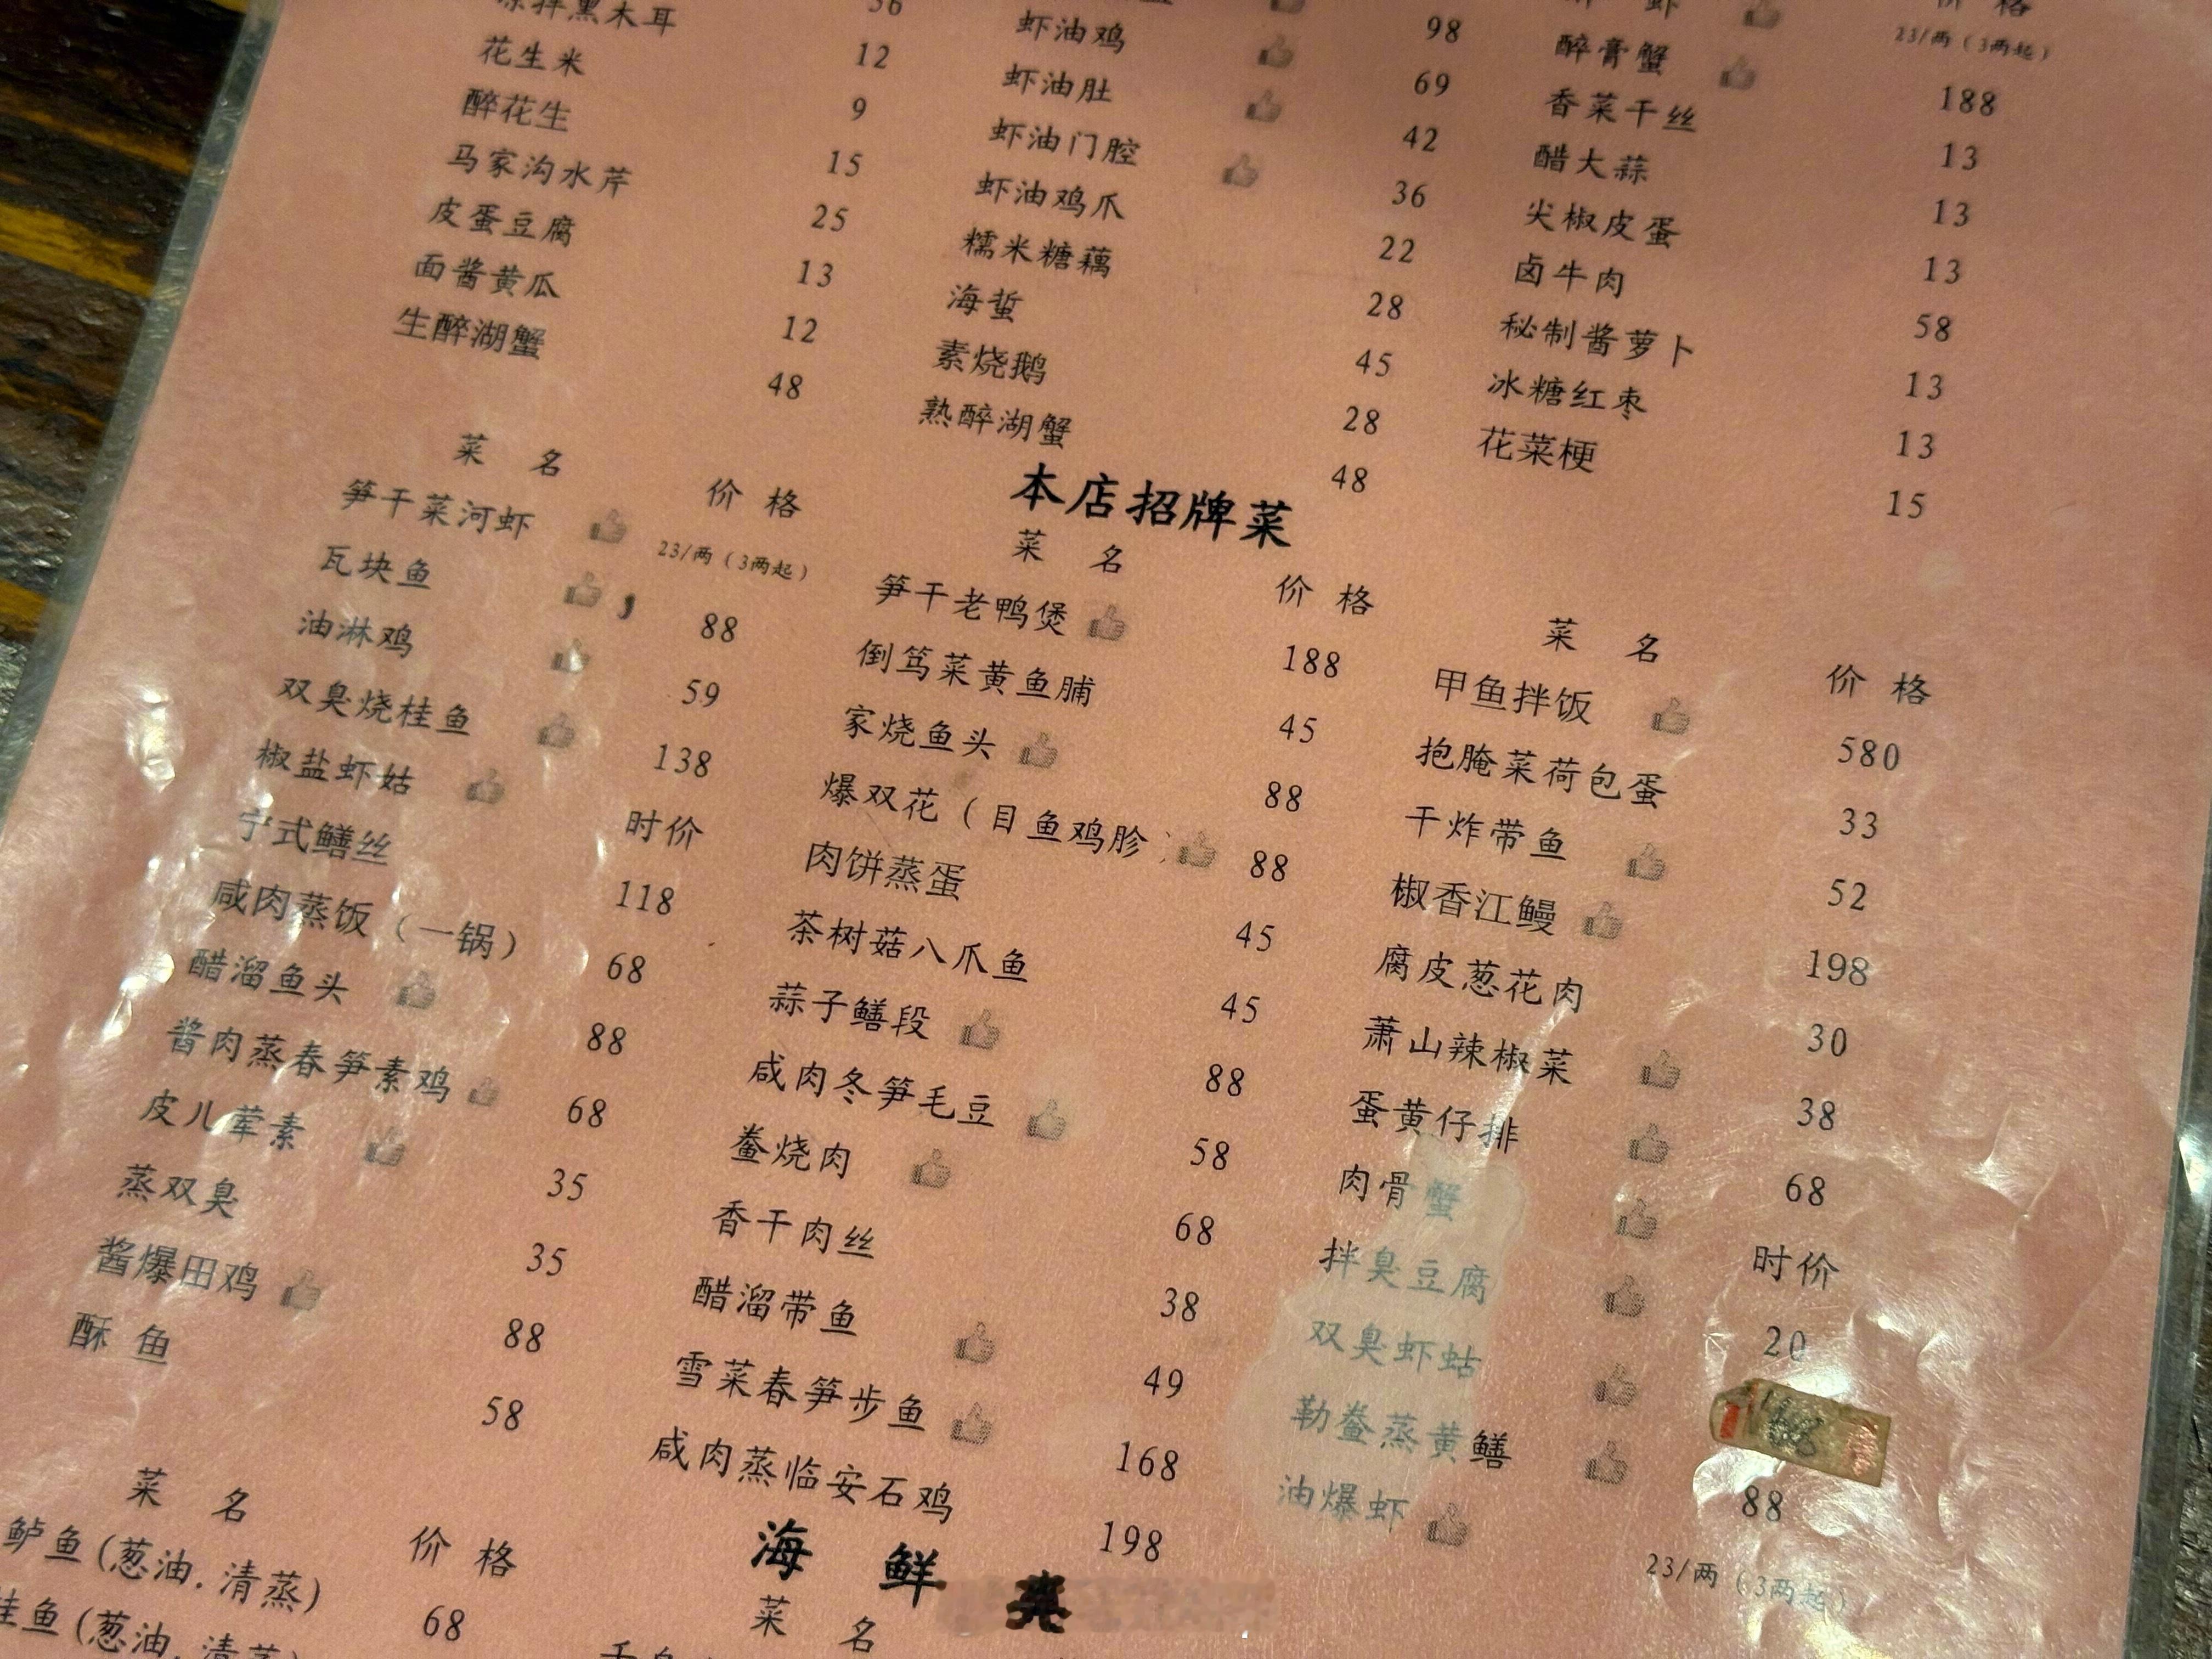 36 98 虾 23/两（3两起）
虾油鸡 69 醉膏蟹 188
凉拌黑木耳 12 虾油肚 42 香菜干丝 13
花生米 9 虾油门腔 36 醋大蒜 13
醉花生 15 虾油鸡爪 22 尖椒皮蛋 13
马家沟水芹 25 糯米糖藕 28 卤牛肉 58
皮蛋豆腐 13 海蜇 45 秘制酱萝卜 13
面酱黄瓜 12 素烧鹅 28 冰糖红枣 13
生醉湖蟹 48 熟醉湖蟹 48 花菜梗 15
本店招牌菜
菜 名 价 格 菜 名 价 格 菜 名 价 格
笋干菜河虾 23/两（3两起） 笋干老鸭煲 188 甲鱼拌饭 580
瓦块鱼 88 倒笃菜黄鱼脯 45 抱腌菜荷包蛋 33
油淋鸡 59 家烧鱼头 88 干炸带鱼 52
双臭烧桂鱼 138 爆双花（目鱼鸡胗） 88 椒香江鳗 198
椒盐虾姑 时价 肉饼蒸蛋 45 腐皮葱花肉 30
宁式鳝丝 118 茶树菇八爪鱼 45 萧山辣椒菜 38
咸肉蒸饭（一锅） 68 蒜子鳝段 88 蛋黄仔排 68
醋溜鱼头 88 咸肉冬笋毛豆 58 肉骨蟹 时价
酱肉蒸春笋素鸡 68 鲞烧肉 68 拌臭豆腐 20
皮儿荤素 35 香干肉丝 38 双臭虾蛄
蒸双臭 35 醋溜带鱼 49 勒鲞蒸黄鳝 88
酱爆田鸡 88 雪菜春笋步鱼 168 油爆虾 23/两（3两起）
酥 鱼 58 咸肉蒸临安石鸡 198
海 鲜 类
菜 名 价 格 菜 名
鲈鱼(葱油.清蒸) 68
桂鱼(葱油.清蒸)